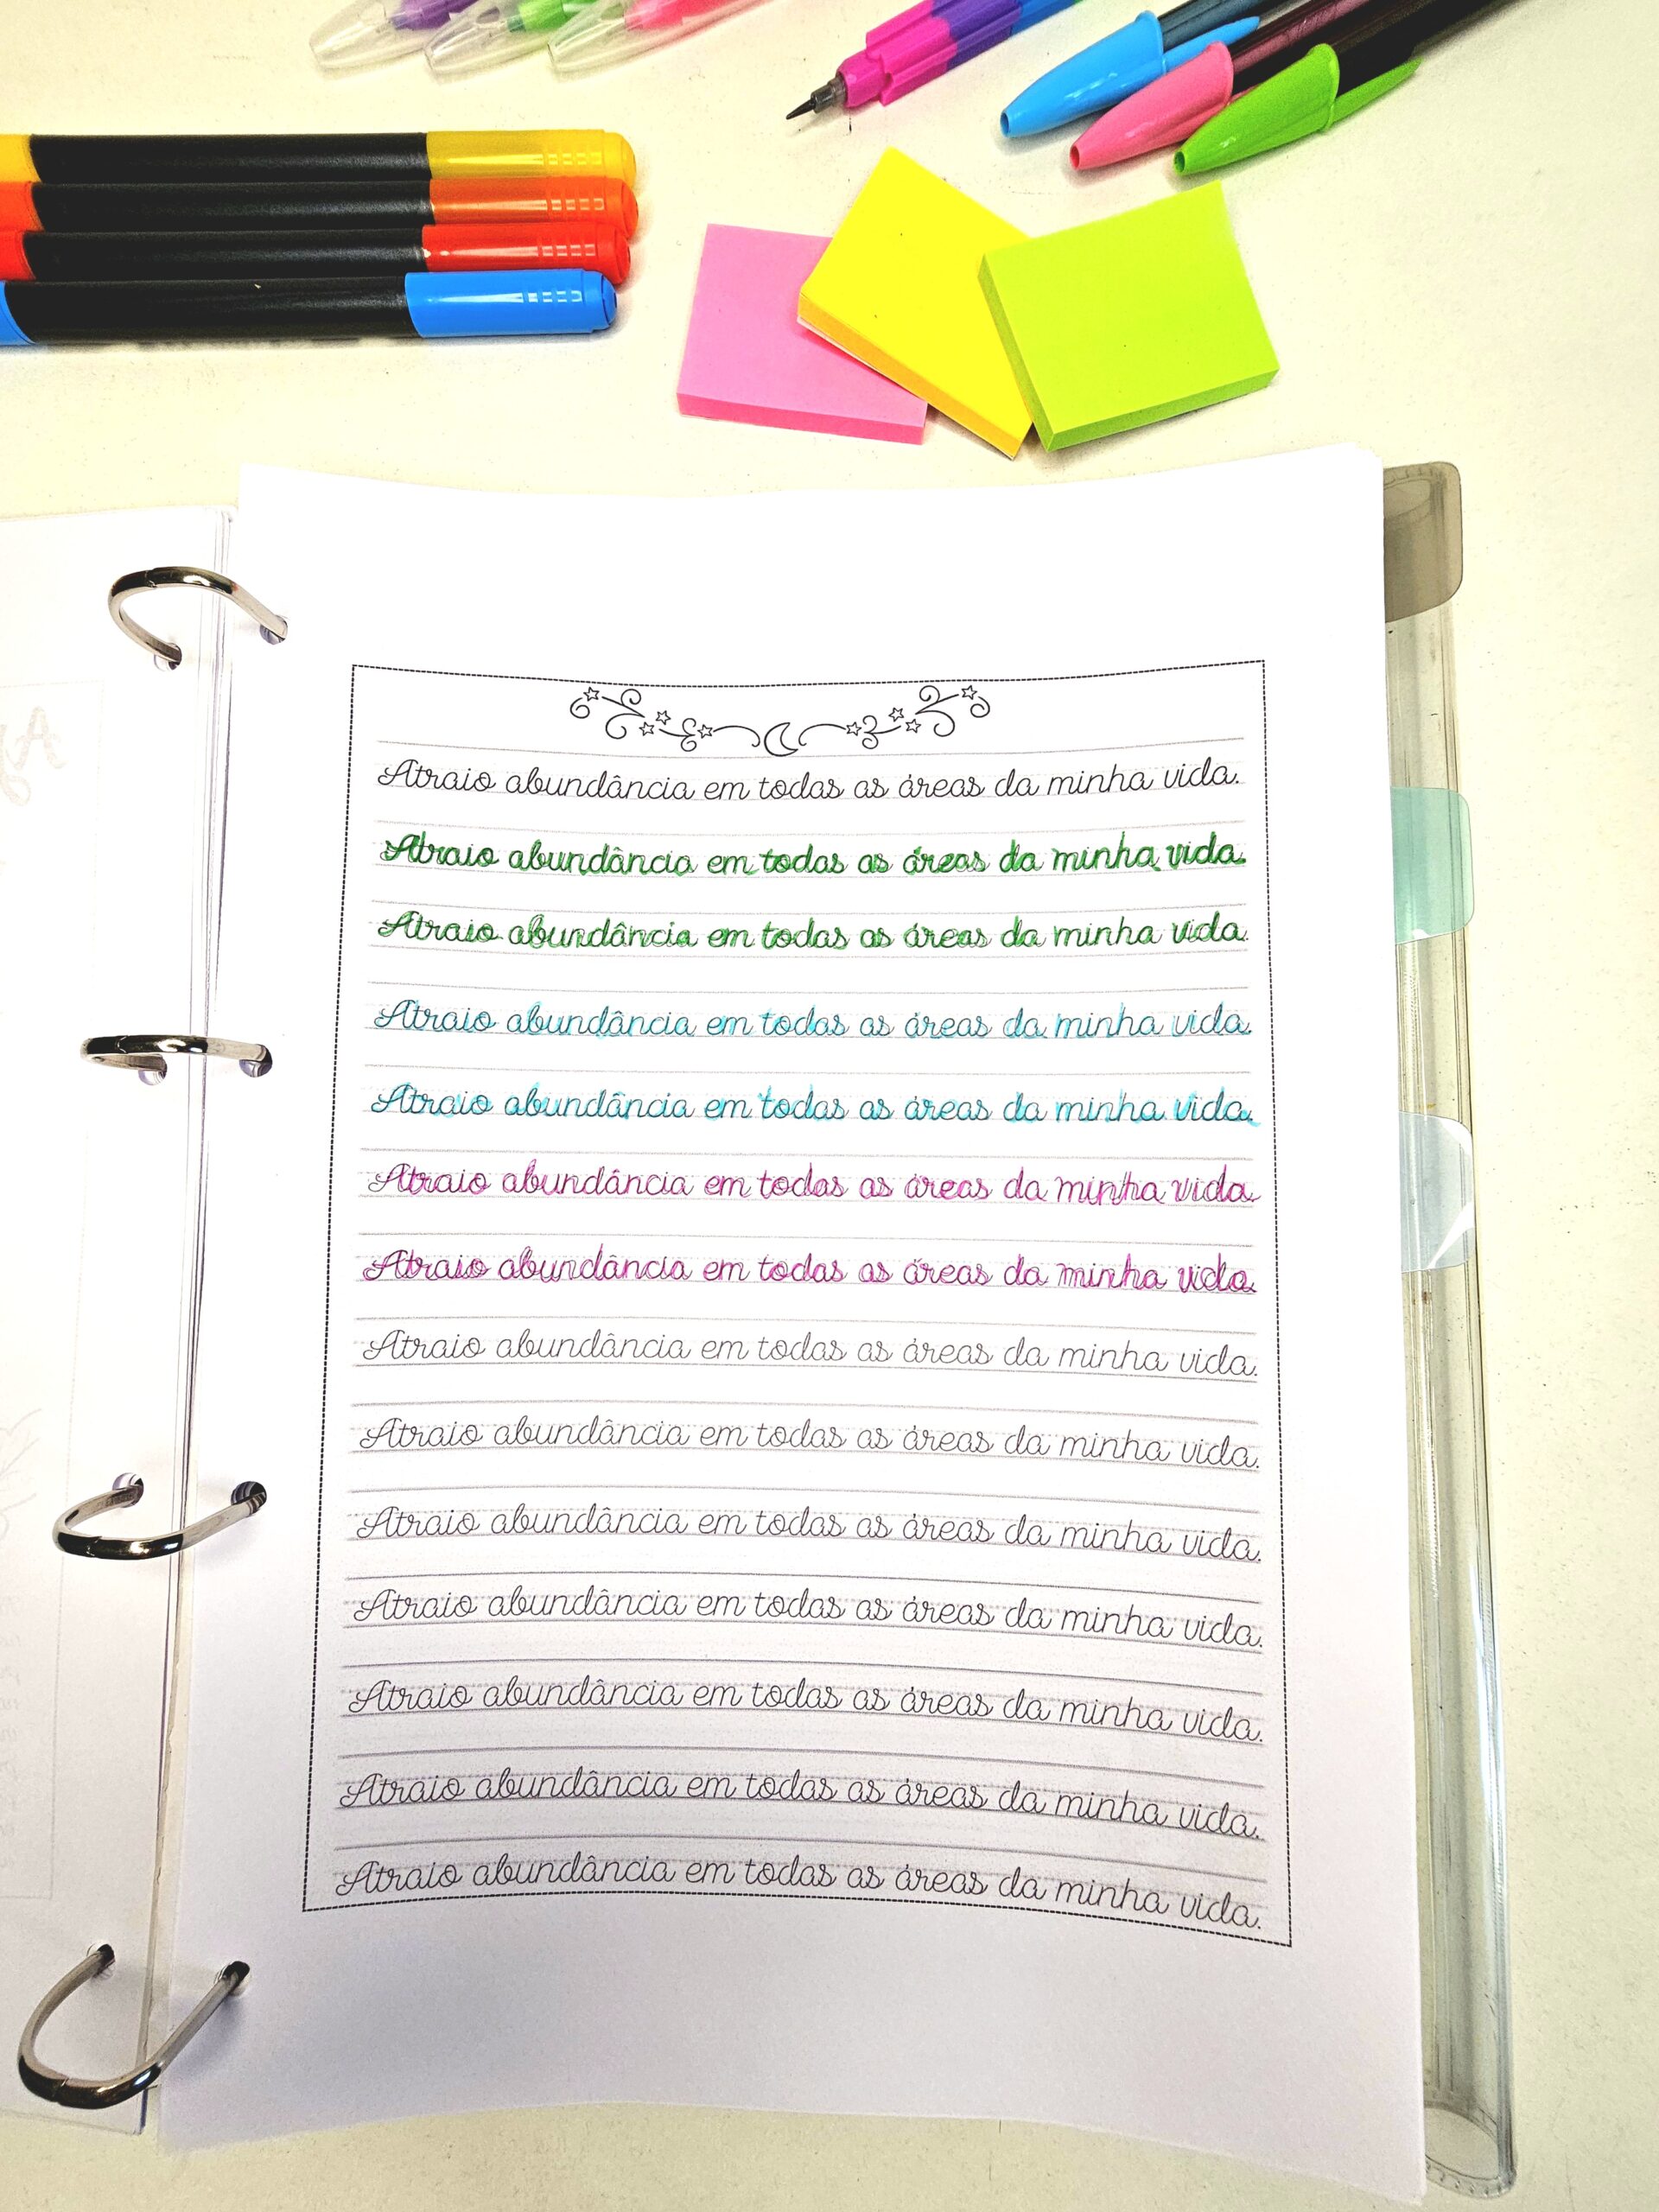 Atraio abundância em todas as áreas da minha vida.
Atraio abundância em todas as áreas da minha vida.
Atraio abundância em todas as áreas da minha vida.
Atraio abundância em todas as áreas da minha vida.
Atraio abundância em todas as áreas da minha vida.
Atraio abundância em todas as áreas da minha vida.
Atraio abundância em todas as áreas da minha vida.
Atraio abundância em todas as áreas da minha vida.
Atraio abundância em todas as áreas da minha vida.
Atraio abundância em todas as áreas da minha vida.
Atraio abundância em todas as áreas da minha vida.
Atraio abundância em todas as áreas da minha vida.
Atraio abundância em todas as áreas da minha vida.
Atraio abundância em todas as áreas da minha vida.